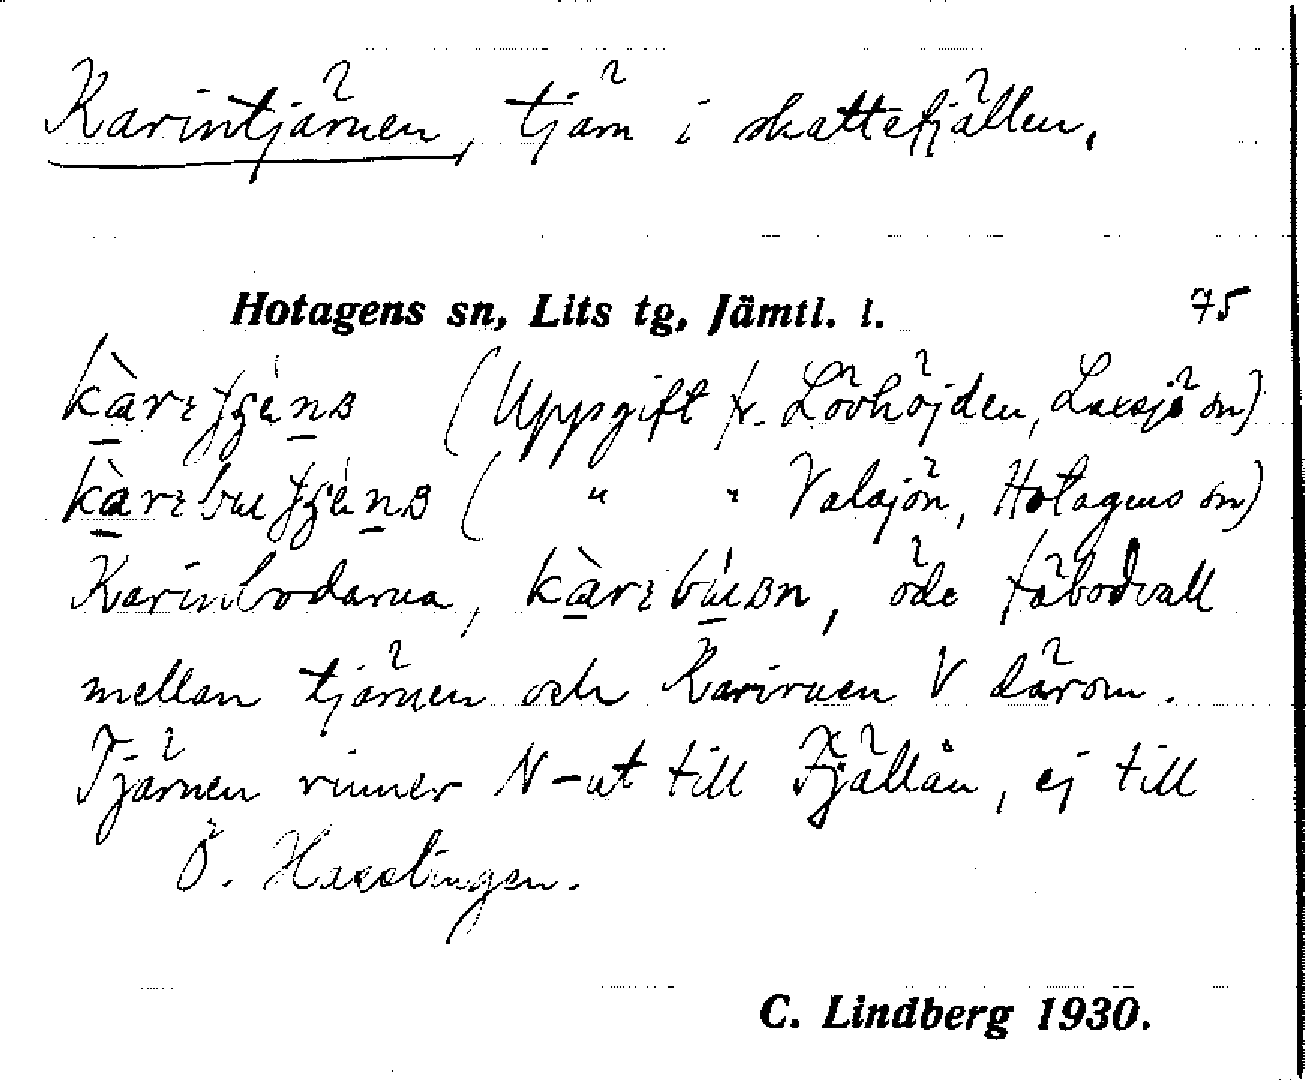 Karintjärnen, tjärn i skattefjällen.
Hotagens sn, Lits tg, Jämtl. l. 75
(Uppgift fr. Lövhöjden, Laxsjö sn)
( " " Valsjön, Hotagens sn)
Karinbodarna, öde fäbodvall
mellan tjärnen och V därom.
Tjärnen rinner N-ut till Fjällån, ej till
Ö.
C. Lindberg 1930.